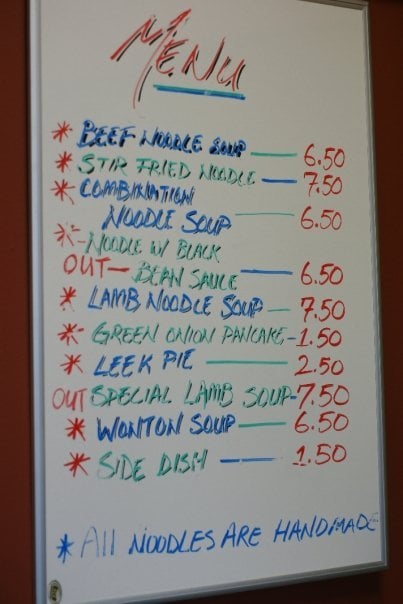 MENU
* BEEF NOODLE SOUP — 6.50
* STIR FRIED NOODLE — 7.50
* COMBINATION
NOODLE SOUP — 6.50
* NOODLE W/ BLACK
OUT — BEAN SAUCE — 6.50
* LAMB NOODLE SOUP — 7.50
* GREEN ONION PANCAKE - 1.50
* LEEK PIE — 2.50
OUT SPECIAL LAMB SOUP - 7.50
* WONTON SOUP — 6.50
* SIDE DISH — 1.50
* All NOODLES ARE HANDMADE